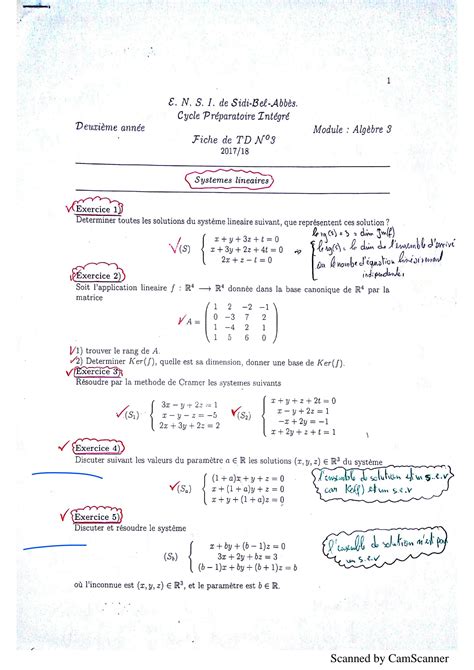 1
E. N. S. I. de Sidi-Bel-Abbès.
Cycle Préparatoire Intégré
Deuxième année
Module : Algèbre 3
Fiche de TD N°3
2017/18
Systemes lineaires
Exercice 1)
Determiner toutes les solutions du système lineaire suivant, que représentent ces solution ?
(S) { x + y + 3z + t = 0
x + 3y + 2z + 4t = 0
2x + z − t = 0
le rg(s) = 3 = dim Im(f)
le rg(s) = le dim de l'ensemble d'arrivé
ou le nombre d'équation linéairement
independantes
Exercice 2)
Soit l'application lineaire f : R⁴ → R⁴ donnée dans la base canonique de R⁴ par la
matrice
A = ( 1 2 −2 −1
0 −3 7 2
1 −4 2 1
1 5 6 0 )
1) trouver le rang de A.
2) Determiner Ker(f), quelle est sa dimension, donner une base de Ker(f).
Exercice 3)
Résoudre par la methode de Cramer les systemes suivants
(S₁) { 3x − y + 2z = 1
x − y − z = −5
2x + 3y + 2z = 2
(S₂) { x + y + z + 2t = 0
x − y + 2t = 1
−x + 2y = −1
x + 2y + z + t = 1
Exercice 4)
Discuter suivant les valeurs du paramètre a ∈ R les solutions (x, y, z) ∈ R³ du système
(Sₐ) { (1 + a)x + y + z = 0
x + (1 + a)y + z = 0
x + y + (1 + a)z = 0
l'ensemble de solution est un s.e.v
car Ker(f) est un s.e.v
Exercice 5)
Discuter et résoudre le système
(S_b) { x + by + (b − 1)z = 0
3x + 2y + bz = 3
(b − 1)x + by + (b + 1)z = b
l'ensemble de solution n'est pas
un s.e.v
où l'inconnue est (x, y, z) ∈ R³, et le paramètre est b ∈ R.
Scanned by CamScanner